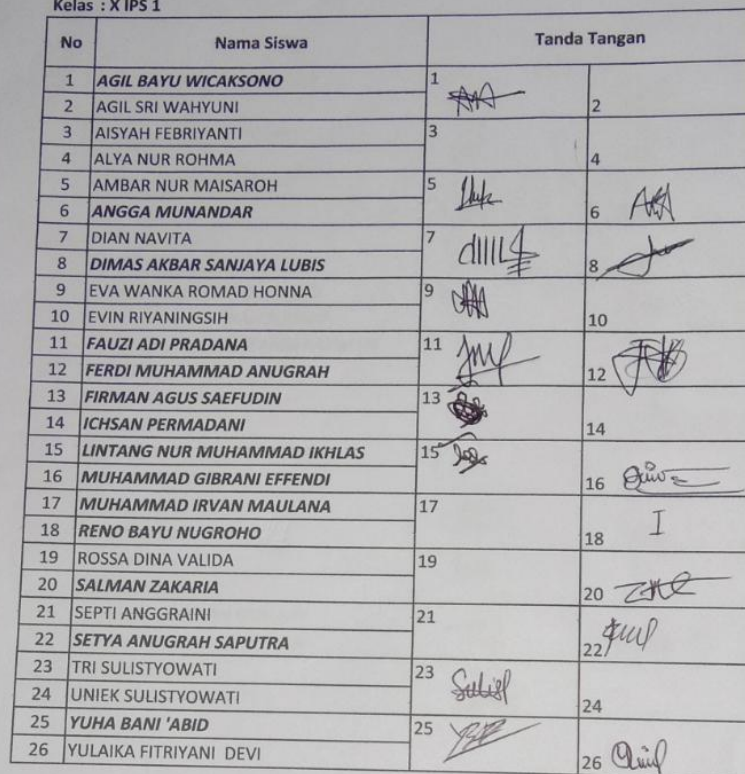 Kelas : X IPS 1
No Nama Siswa Tanda Tangan
1 AGIL BAYU WICAKSONO 1
2 AGIL SRI WAHYUNI 2
3 AISYAH FEBRIYANTI 3
4 ALYA NUR ROHMA 4
5 AMBAR NUR MAISAROH 5
6 ANGGA MUNANDAR 6
7 DIAN NAVITA 7
8 DIMAS AKBAR SANJAYA LUBIS 8
9 EVA WANKA ROMAD HONNA 9
10 EVIN RIYANINGSIH 10
11 FAUZI ADI PRADANA 11
12 FERDI MUHAMMAD ANUGRAH 12
13 FIRMAN AGUS SAEFUDIN 13
14 ICHSAN PERMADANI 14
15 LINTANG NUR MUHAMMAD IKHLAS 15
16 MUHAMMAD GIBRANI EFFENDI 16
17 MUHAMMAD IRVAN MAULANA 17
18 RENO BAYU NUGROHO 18
19 ROSSA DINA VALIDA 19
20 SALMAN ZAKARIA 20
21 SEPTI ANGGRAINI 21
22 SETYA ANUGRAH SAPUTRA 22
23 TRI SULISTYOWATI 23
24 UNIEK SULISTYOWATI 24
25 YUHA BANI 'ABID 25
26 YULAIKA FITRIYANI DEVI 26